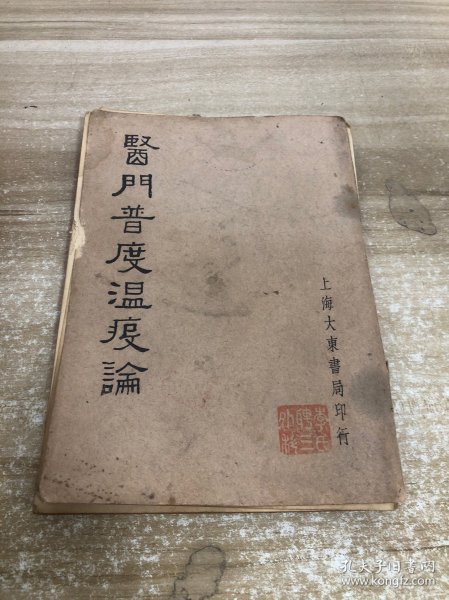 醫門普度温疫論
上海大東書局印行
李氏
聘三
孔夫子旧书网
www.kongfz.com